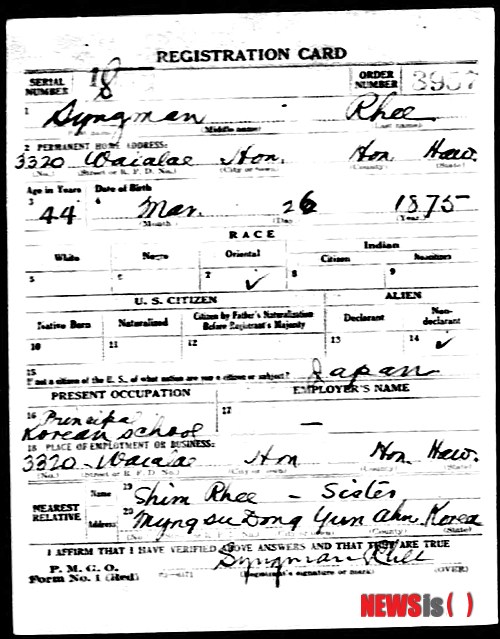 REGISTRATION CARD
SERIAL NUMBER 18 ORDER NUMBER 3957
1 Syngman Rhee
(Middle name) (Last name)
2 PERMANENT HOME ADDRESS:
3320 Waialae Hon. Hon. Haw.
(No.) (Street or R. F. D. No.) (City or town) (County) (State)
Age in Years Date of Birth
3 44 4 Mar. 26 1875
(Month) (Day) (Year)
RACE
White Negro Oriental Indian
Citizen Noncitizen
5 6 7 ✓ 8 9
U. S. CITIZEN ALIEN
Native Born Naturalized Citizen by Father's Naturalization Before Registrant's Majority Declarant Non-declarant
10 11 12 13 14 ✓
15 Japan
If not a citizen of the U. S., of what nation are you a citizen or subject?
PRESENT OCCUPATION EMPLOYER'S NAME
16 Principal 17 —
Korean School
18 PLACE OF EMPLOYMENT OR BUSINESS:
3320 - Waialae Hon Hon Haw.
(No.) (Street or R. F. D. No.) (City or town) (County) (State)
NEAREST RELATIVE
Name 19 Shim Rhee - Sister
Address 20 Myng Su Dong Yun Ahn, Korea
(No.) (State)
I AFFIRM THAT I HAVE VERIFIED ABOVE ANSWERS AND THAT THEY ARE TRUE
P. M. G. O.
Form No. 1 (Red) Syngman Rhee
(Registrant's signature or mark) (OVER)
NEWSis( )